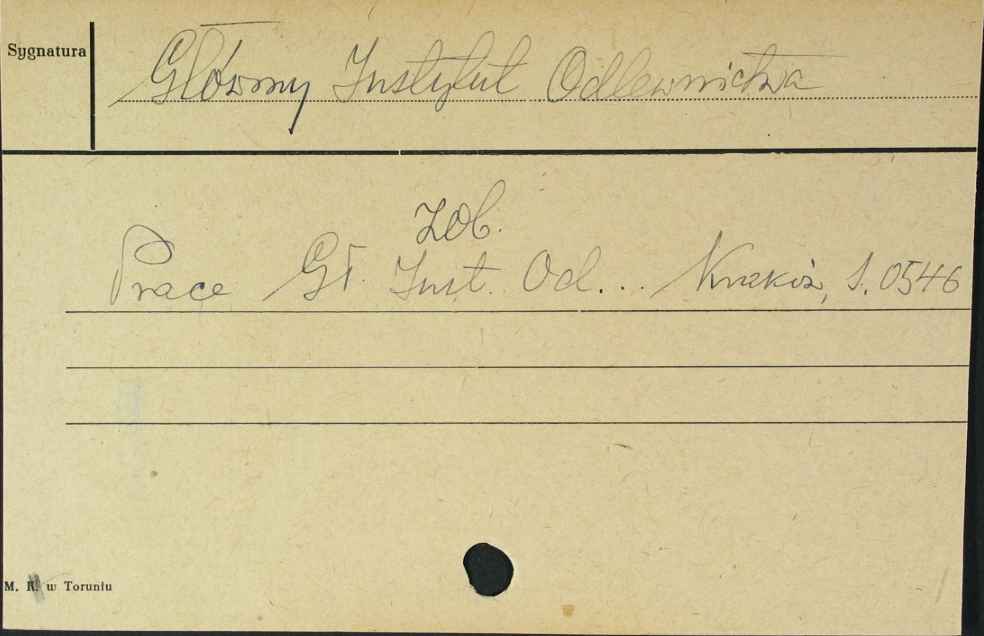 Sygnatura
Główny Instytut Odlewnictwa
Zob.
Prace Gł. Inst. Od... Kraków, S. 0546
M. K. w Toruniu